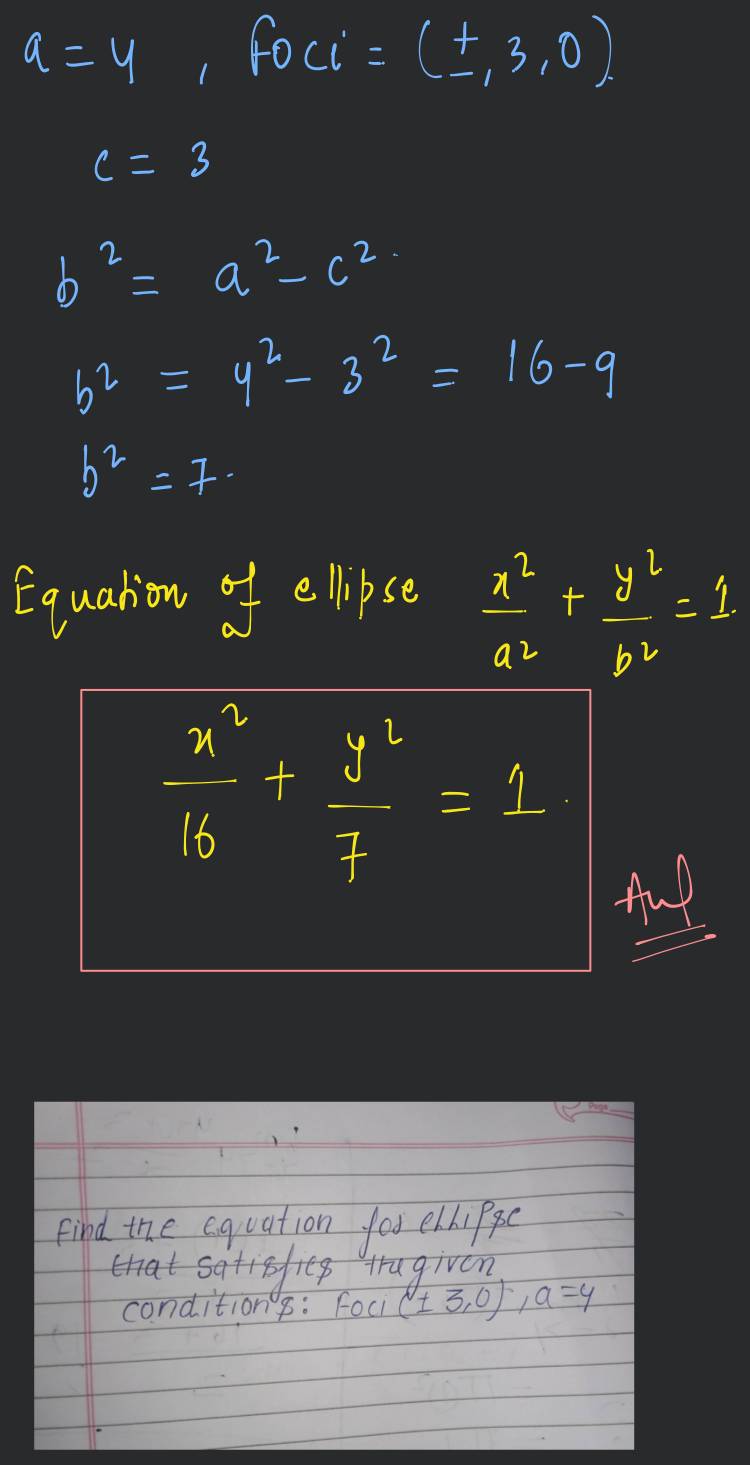 a = 4 , foci = (±, 3, 0).
c = 3
b² = a² - c².
b² = 4² - 3² = 16 - 9
b² = 7.
Equation of ellipse x²/a² + y²/b² = 1.
x²/16 + y²/7 = 1.
Ans
Page
Find the equation for ellipse
that satisfies the given
condition's: Foci (± 3,0), a=4